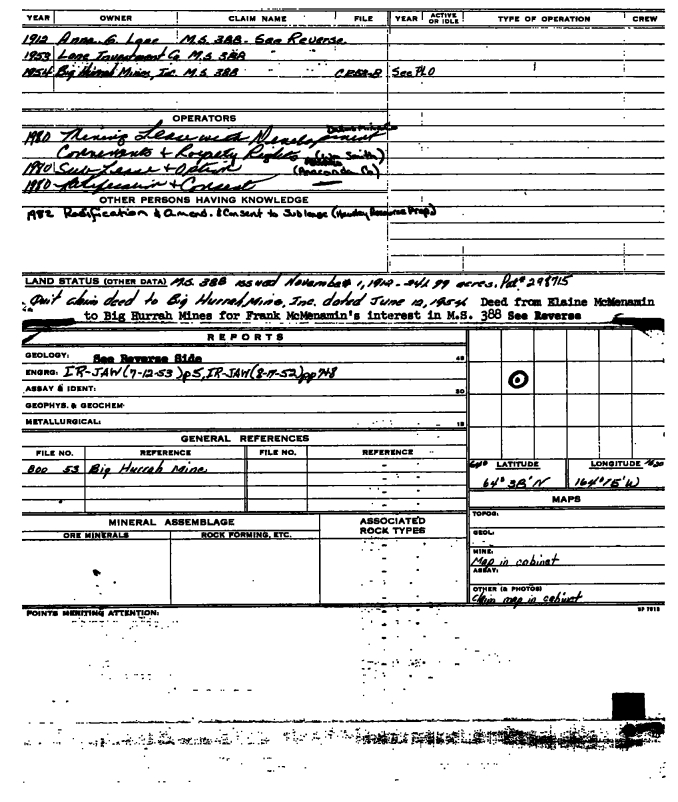 YEAR OWNER CLAIM NAME FILE YEAR ACTIVE OR IDLE TYPE OF OPERATION CREW
1912 Anna G. Lane M.S. 388 - See Reverse.
1953 Lane Investment Co M.S. 388
1954 Big Hurrah Mines, Inc. M.S. 388 See
OPERATORS
1980 Mining Lease with Development
Covenants & Royalty Rights Smith)
1980 Sub Lease & Option (Anaconda Co)
1980 & Consent
OTHER PERSONS HAVING KNOWLEDGE
1982 Ratification & Amend. & Consent to Sublease Resource Prop.)
LAND STATUS (OTHER DATA) M.S. 388 issued November 1, 1912 - 99 acres. Pat# 298715
Quit claim deed to Big Hurrah Mine, Inc. dated June 12, 1954 Deed from Elaine McMenamin
to Big Hurrah Mines for Frank McMenamin's interest in M.S. 388 See Reverse
REPORTS
GEOLOGY: See Reverse Side 45
ENGRG: IR-JAW (7-12-53) p5, IR-JAW (8-17-52) pp7&8
ASSAY & IDENT: 30
GEOPHYS. & GEOCHEM:
METALLURGICAL: 15
GENERAL REFERENCES
FILE NO. REFERENCE FILE NO. REFERENCE
800 53 Big Hurrah Mine
LATITUDE LONGITUDE
64° 38' N 164° 15' W
MAPS
MINERAL ASSEMBLAGE ASSOCIATED ROCK TYPES
ORE MINERALS ROCK FORMING, ETC.
TOPOG:
GEOL:
MINE:
Map in cabinet
ASSAY:
OTHER (& PHOTOS)
Claim map in cabinet
POINTS MERITING ATTENTION: